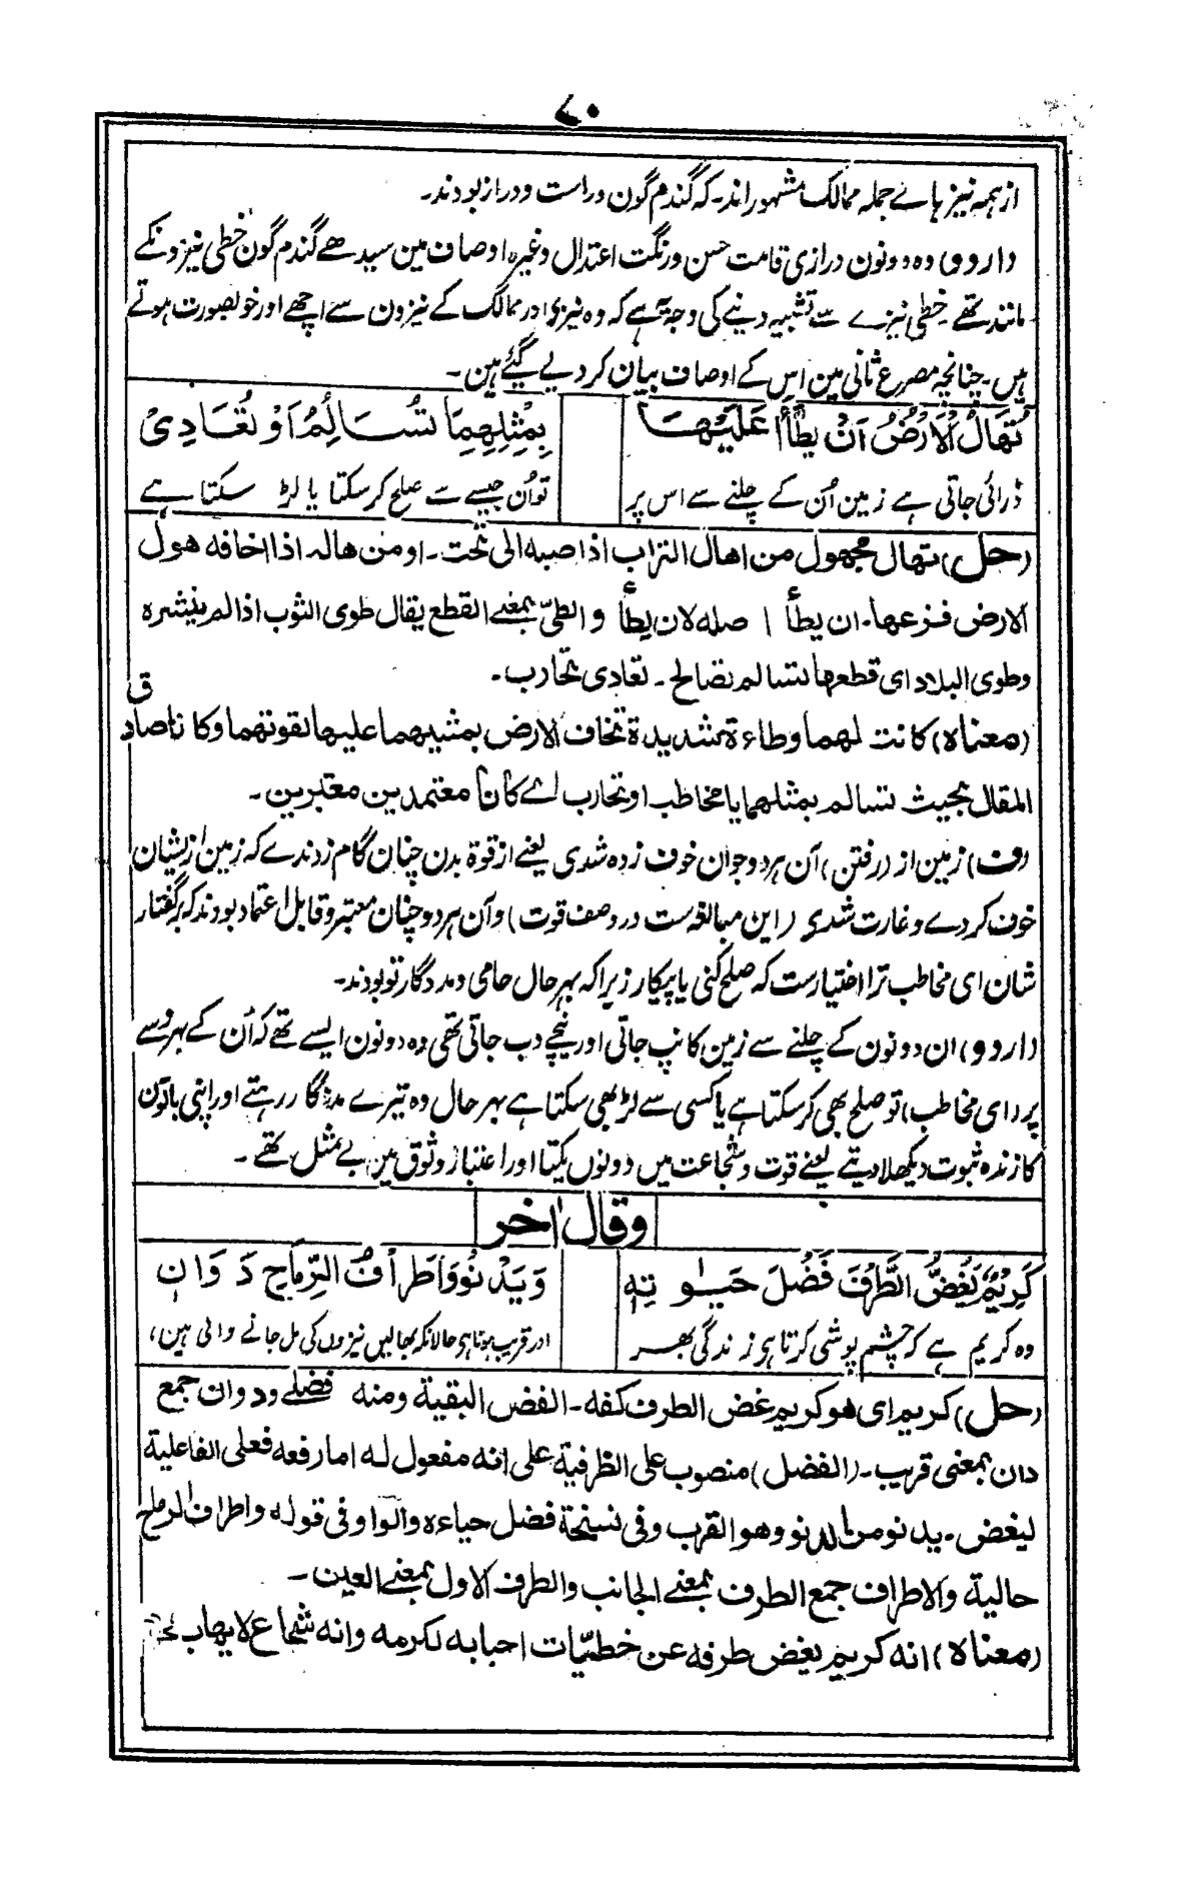 ۷۰
از ہمہ نیز ہاے جملہ ممالک مشہور اند۔ کہ گندم گون و راست و دراز بودند۔
(اردو) وہ دونون درازی قامت حسن ورنگت اعتدال وغیرہ اوصاف مین سیدھے گندم گون خطی نیزونکے
مانند تھے۔ خطی نیزے سے تشبیہ دینے کی وجہ یہ ہے کہ وہ نیزی اور ممالک کے نیزون سے اچھے اور خوبصورت ہوتے
ہیں۔ چنانچہ مصرع ثانی مین اس کے اوصاف بیان کر دیے گیٔے ہین۔
تُهَالُ الْاَرْضُ اَنْ يَطَأَا عَلَيْهَا بِمِثْلِهِمَا تُسَالِمُ اَوْ تُعَادِىْ
ڈرائی جاتی ہے زمین اُن کے چلنے سے اس پر تو اُن جیسے سے صلح کر سکتا یا لڑ سکتا ہے
(حل) تهال مجهول من اهال التراب اذا صبه الى تحت۔ او من هاله اذا اخافه هول
الارض فزعها۔ ان يطأ ا صله لان يطأ و الطىّ بمعنے القطع يقال طوى الثوب اذا لم ينشره
وطوى البلاد اى قطعها تسالم تصالح۔ تعادى تحارب۔
(معناه) كانت لهما وطاءة شديدة تخاف الارض بمشيهما عليها لقوتهما وكانا صادق
المقال بحيث تسالم بمثلهما يا مخاطب او تحارب اے كانا معتمدين معتبرين۔
(ف) زمین از (رفتن) آن ہر دو جوان خوف زدہ شدی یعنے از قوة بدن چنان گام زدندے کہ زمین ازیشان
خوف کردے و غارت شدی (این مبالغہ ست در وصف قوت) و آن ہر دو چنان معتبر و قابل اعتماد بودند کہ بر گفتار
شان ای مخاطب ترا اختیارست کہ صلح کنی یا پیکار زیراکہ بہرحال حامی و مددگار تو بودند۔
(اردو) ان دونون کے چلنے سے زمین کانپ جاتی اور نیچے دب جاتی تھی وہ دونون ایسے تھے کہ اُن کے بہروسے
پر (ای مخاطب) تو صلح بھی کر سکتا ہے یا کسی سے لڑ بھی سکتا ہے بہرحال وہ تیرے مددگار رہتے اور اپنی باتون
کا زندہ ثبوت دیکھلا دیتے یعنے قوت و شجاعت میں دونوں یکتا اور اعتبار و ثوق مین بے مثل تھے۔
وقال اٰخر
كَرِيْمٌ يَغُضُّ الطَّرْفَ فَضْلَ حَيَــوتِهٖ وَيَدْنُوْ وَاَطْرَافُ الرِّمَاحِ دَوَانٖ
وہ کریم ہے کہ چشم پوشی کرتا ہو زندگی بھر اور قریب ہوتا ہو حالانکہ بھالیں نیزوں کی مل جانے والی ہین،
(حل) كريم اى هو كريم غض الطرف كفه۔ الفضل البقية ومنه فضلے ودوان جمع
دان بمعنى قريب۔ (الفضل) منصوب على الظرفية على انه مفعول له اما رفعه فعلى الفاعلية
ليغض۔ يدنو من الدنو وهو القرب وفى نسخة فضل حياءه والواو فى قوله واطراف الرماح
حالية والاطراف جمع الطرف بمعنے الجانب والطرف الاول بمعنے العين۔
(معناه) انه كريم يغض طرفه عن خطيّات احبابه لكرمه وانه شجاع لا يهاب